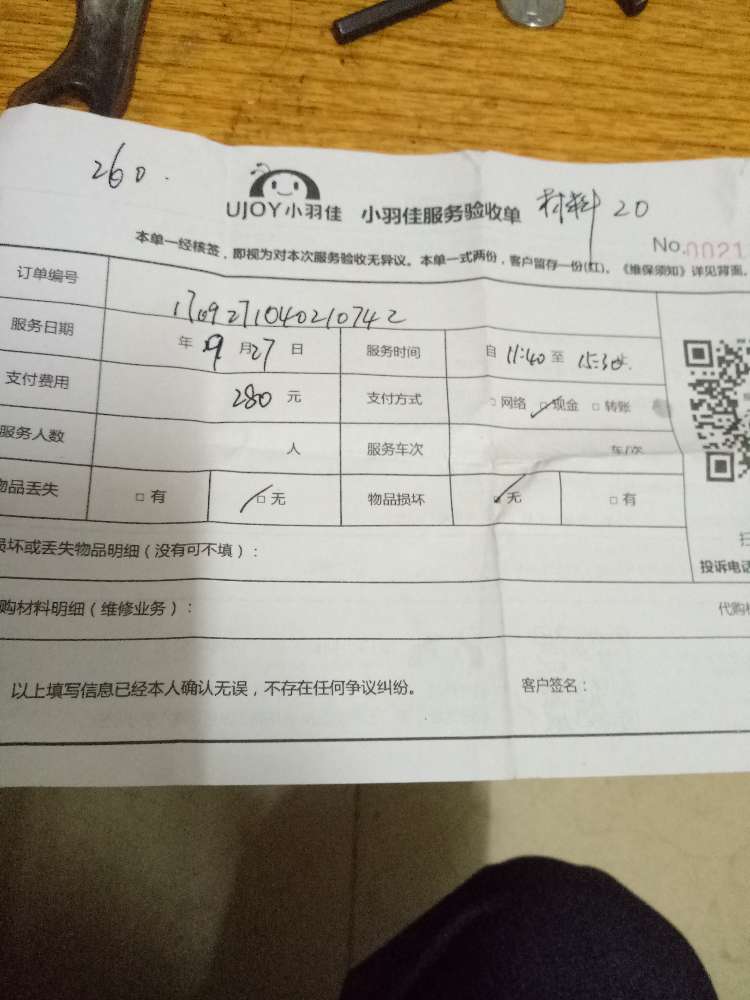 260.
UJOY小羽佳 小羽佳服务验收单 材料20
No.0021
本单一经核签，即视为对本次服务验收无异议。本单一式两份，客户留存一份(红)。《维保须知》详见背面。
订单编号 1709271040210742
服务日期 年 9 月 27 日 服务时间 自 11:40 至 15:30
支付费用 280 元 支付方式 □网络 ☑现金 □转账
服务人数 人 服务车次 车/次
物品丢失 □有 ☑无 物品损坏 ☑无 □有
损坏或丢失物品明细（没有可不填）：
投诉电话
购材料明细（维修业务）： 代购
以上填写信息已经本人确认无误，不存在任何争议纠纷。 客户签名：